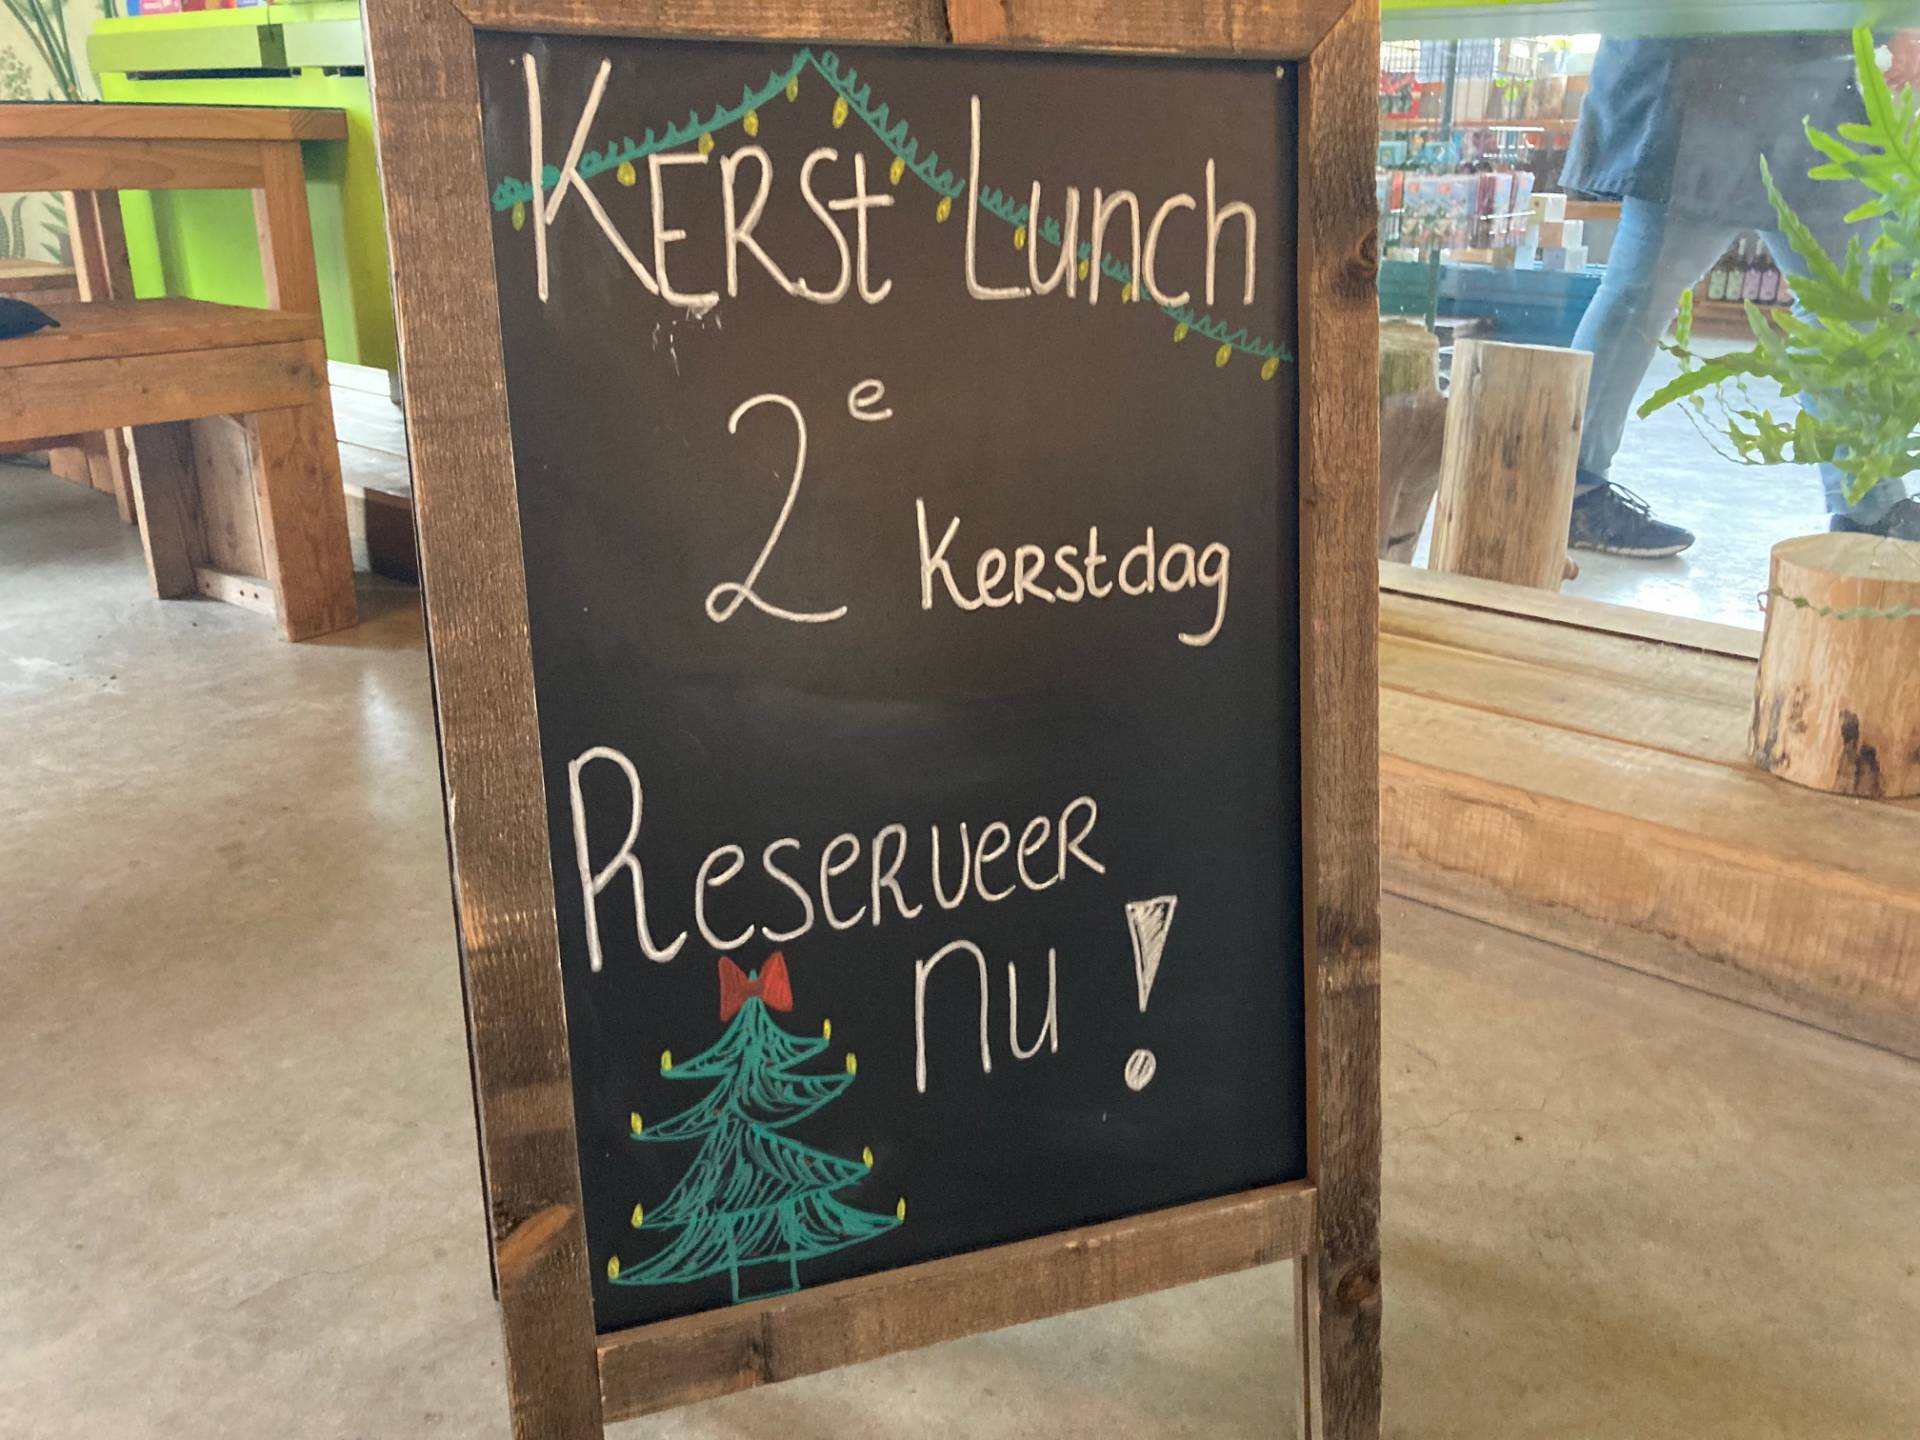 Kerst Lunch
2e Kerstdag
Reserveer
nu!